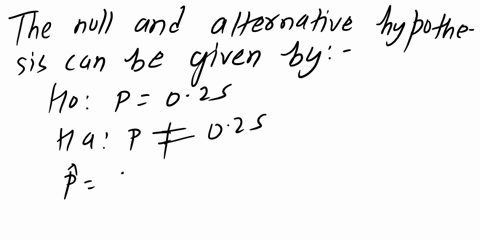 The null and alternative hypothe-
sis can be given by:-
Ho: P = 0.25
Ha: P ≠ 0.25
p̂ =